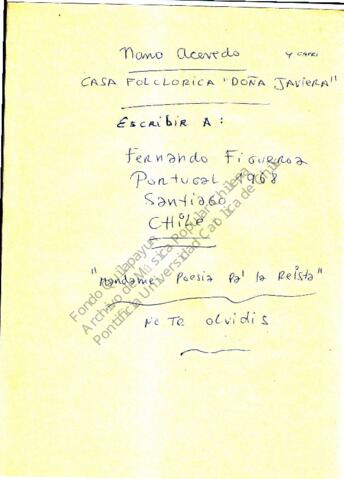 Nano Acevedo y CAPRI
CASA FOLCLORICA "DOÑA JAVIERA"
Escribir A:
Fernando Figueroa
Portugal 1968
Santiago
CHile
"Mandame Poesia Pa' la Reista"
No Te olvidis
Fondo Quilapayún
Archivo de Música Popular Chilena
Pontificia Universidad Católica de Chile